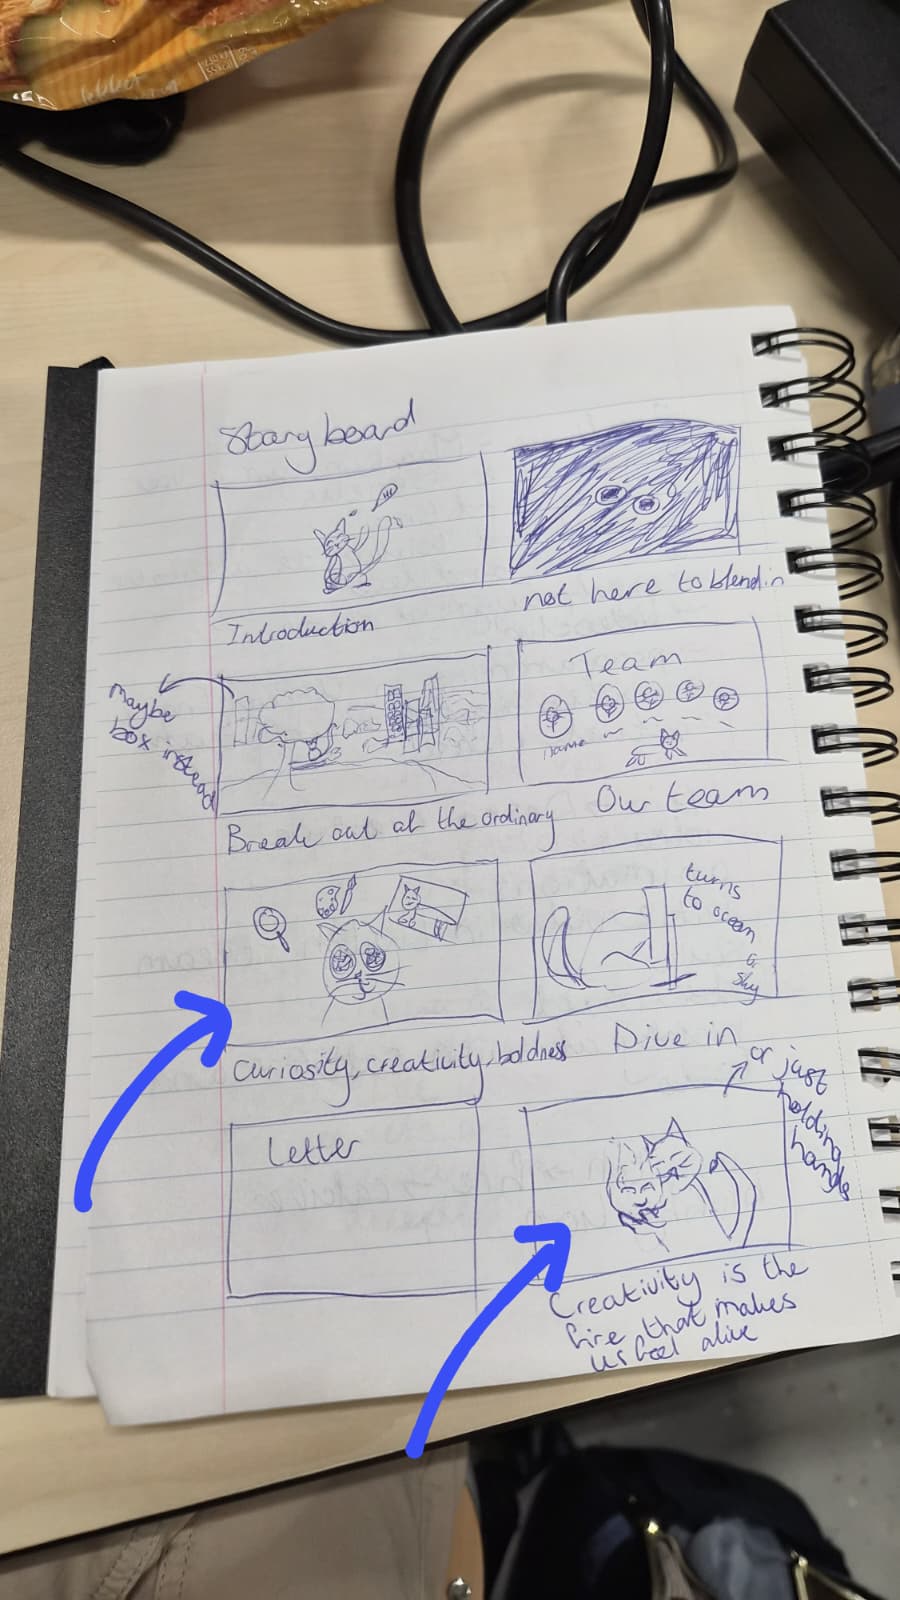 Storyboard
Hi
Introduction
not here to blend in
maybe
box instead
Break out of the ordinary
Team
name
Our team
Curiosity, creativity, boldness
turns
to ocean
sky
Dive in
Letter
or just
holding
hands
Creativity is the
fire that makes
us feel alive